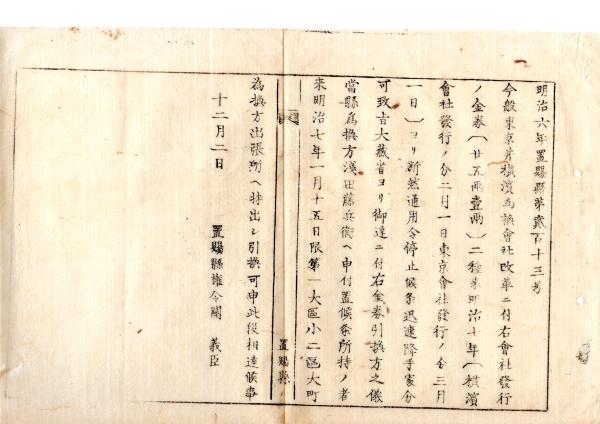 明治六年置賜縣第貳百十三号
今般東京并橫濱為換會社改革ニ付右會社發行
ノ金券〔廿五兩壹兩〕二種来明治七年〔橫濱
會社發行ノ分二月一日東京會社發行ノ分三月
一日〕ヨリ断然通用令停止候条迅速降手家分
可致旨大藏省ヨリ御達ニ付右金券引換方之儀
當縣為換方淺田藤兵衛ヘ申付置候条所持ノ者
来明治七年一月十五日限第一大區小二區大町
置賜縣
為換方出張所ヘ持出シ引換可申此段相達候事
十二月二日
置賜縣権令關 義臣